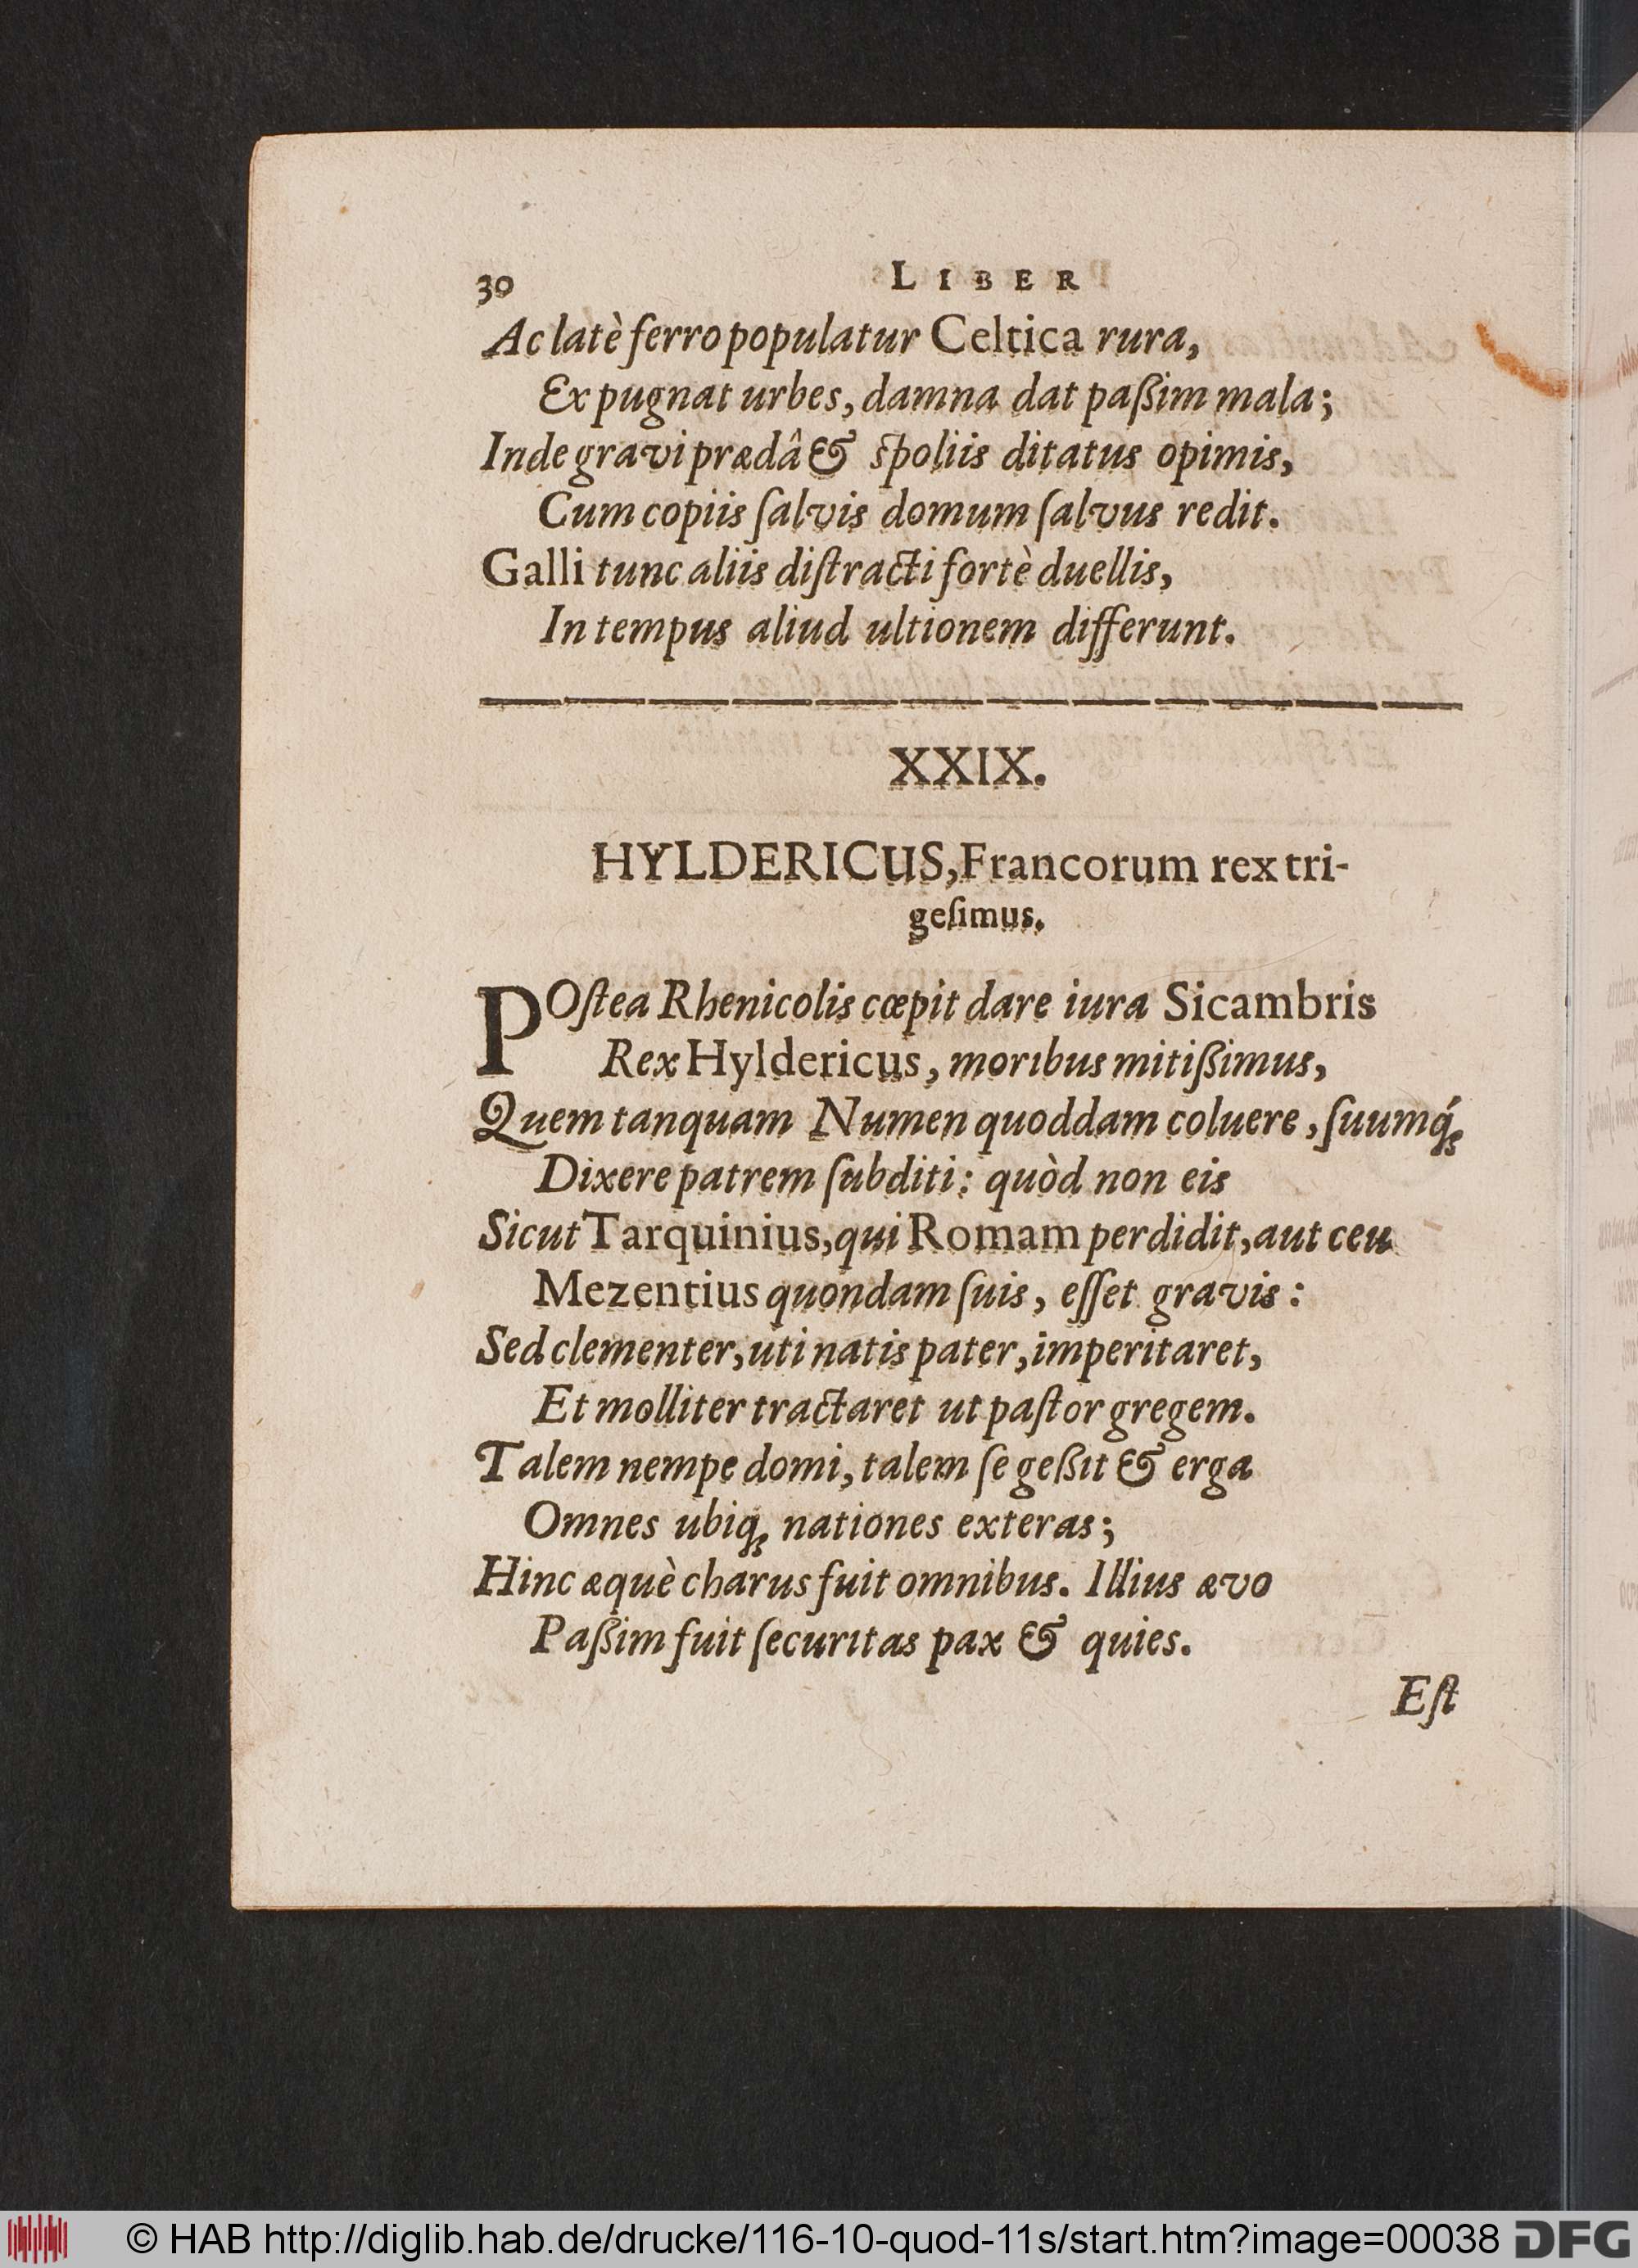 30 LIBER
Ac latè ferro populatur Celtica rura,
Expugnat urbes, damna dat paßim mala;
Inde gravi prædâ & spoliis ditatus opimis,
Cum copiis ſalvis domum ſalvus redit.
Galli tunc aliis diſtracti fortè duellis,
In tempus aliud ultionem differunt.
XXIX.
HYLDERICUS, Francorum rex tri-
geſimus.
POſtea Rhenicolis cœpit dare iura Sicambris
Rex Hyldericus, moribus mitißimus,
Quem tanquam Numen quoddam coluere, ſuumq́;
Dixere patrem ſubditi: quòd non eis
Sicut Tarquinius, qui Romam perdidit, aut ceu
Mezentius quondam ſuis, eſſet gravis:
Sed clementer, uti natis pater, imperitaret,
Et molliter tractaret ut paſtor gregem.
Talem nempe domi, talem ſe geßit & erga
Omnes ubiq; nationes exteras;
Hinc æquè charus fuit omnibus. Illius ævo
Paßim fuit ſecuritas pax & quies.
Eſt
© HAB http://diglib.hab.de/drucke/116-10-quod-11s/start.htm?image=00038 DFG